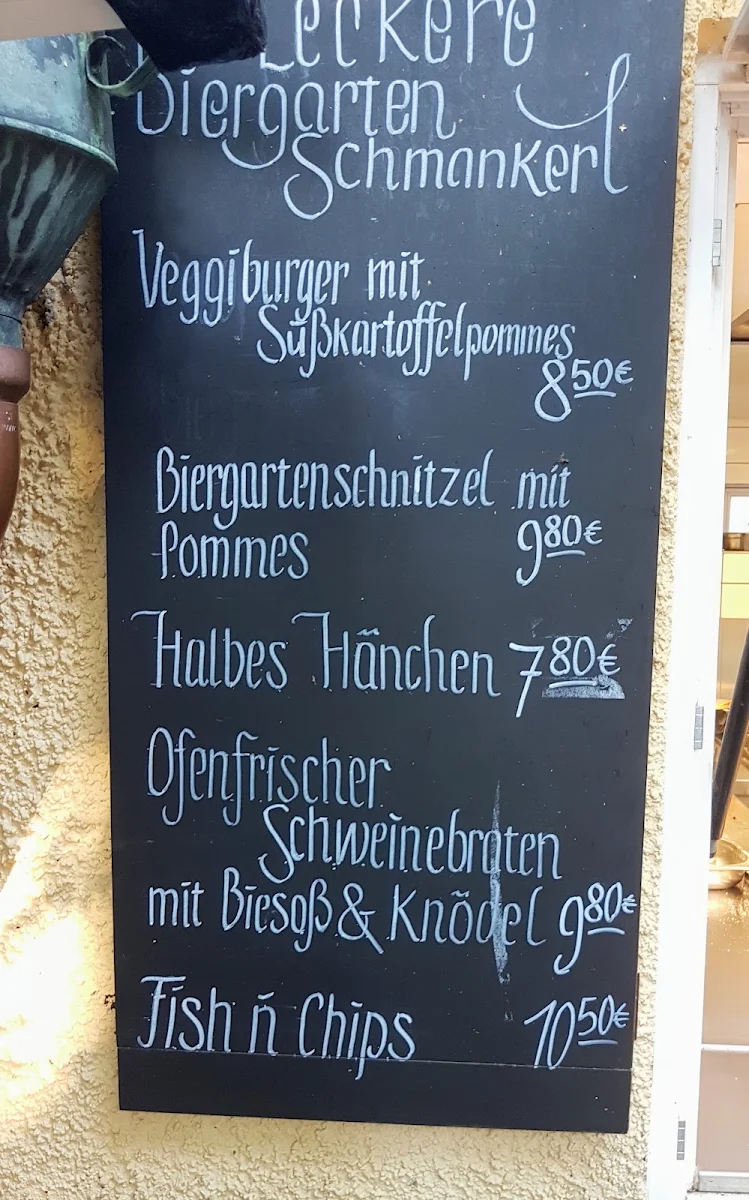 Leckere
Biergarten
Schmankerl
Veggiburger mit
Süßkartoffelpommes
8 50€
Biergartenschnitzel mit
Pommes 9 80€
Halbes Hänchen 7 80€
Ofenfrischer
Schweinebraten
mit Biesoß & Knödel 9 80€
Fish ñ Chips 10 50€